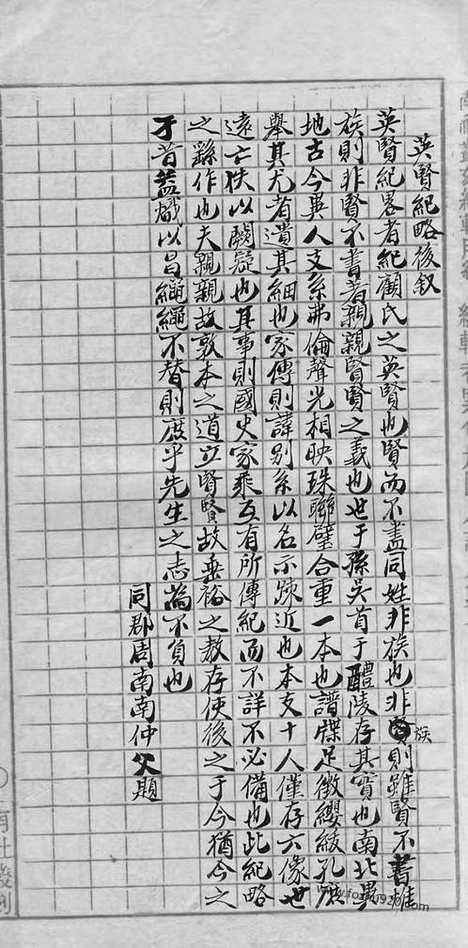 英賢紀略後敘
英賢紀畧者紀顧氏之英賢也賢而不盡同姓非族也非族則雖賢不書惟
族則非賢不書者親親賢賢之義也世于孫吳首于醴陵存其實也南北異
地古今異人支系弗倫聲光相映珠聯璧合重一本也譜牒足徵纓綏孔
舉其尤者遺其細也家傳則諱别系以名示疎近也本支十人僅存六像世
遠亡軼以闕疑也其事則國史家乘互有所傳紀而不詳不必備也此紀略
之繇作也夫親親故敦本之道立賢賢故垂裕之教存使後之于今猶今之
于昔益熾以昌繩繩不替則庶乎先生之志為不負也
同郡周南南仲父題